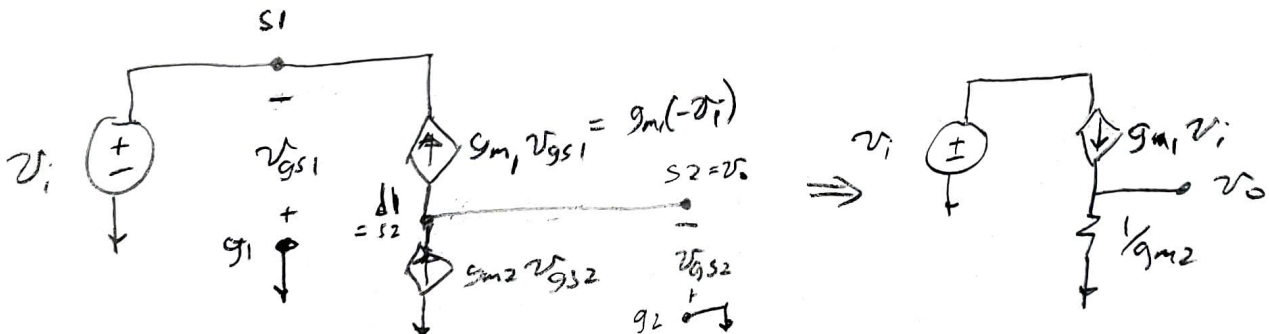 s1
−
v_gs1
+
g1
v_i
+
−
g_m1 v_gs1 = g_m1(-v_i)
d1
= s2
s2 = v_o
−
v_gs2
+
g2
g_m2 v_gs2
⇒
v_i
+
−
g_m1 v_i
v_o
1/g_m2